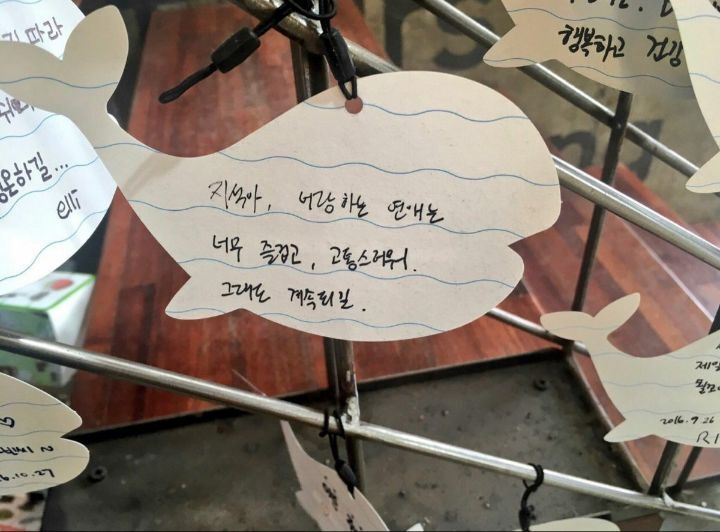 지석아, 너랑 하는 연애는
너무 즐겁고, 고통스러워.
그래도 계속되길.
따라
온하길...
elli
행복하고 건강
제일
2016.9.26